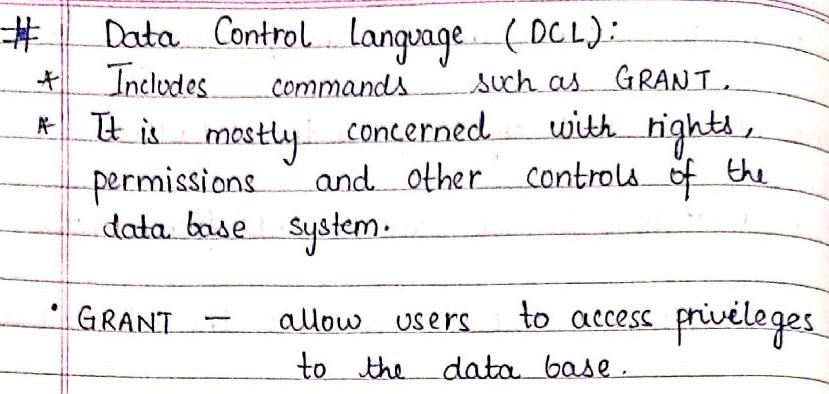 # Data Control Language (DCL):
* Includes commands such as GRANT.
* It is mostly concerned with rights,
permissions and other controls of the
data base system.
• GRANT — allow users to access privileges
to the data base.